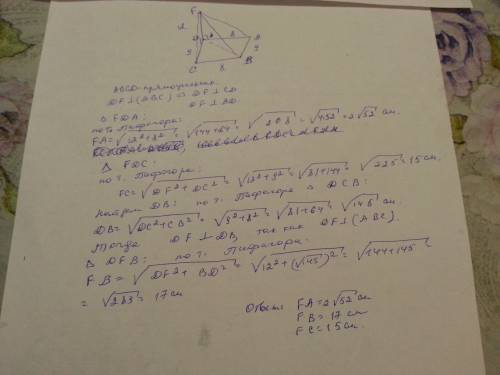 F
12
D
A
8
9
9
C
8
B
ABCD - прямоугольник.
DF⊥(ABC) ⇒ DF⊥CD
DF⊥AD.
△ FDA:
по т. Пифагора:
FA = √12²+8² = √144+64 = √208 = √4·52 = 2√52 см.
△ FDC:
по т. Пифагора:
FC = √DF²+DC² = √12²+9² = √81+144 = √225 = 15 см.
Найдем DB: по т. Пифагора △ DCB:
DB = √DC²+CB² = √9²+8² = √81+64 = √145 см.
Тогда DF⊥DB, так как DF⊥(ABC).
△ DFB: по т. Пифагора:
FB = √DF²+BD² = √12²+(√145)² = √144+145 =
= √283 = 17 см
Ответ: FA=2√52 см
FB = 17 см
FC = 15 см.